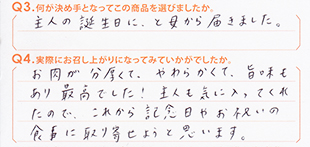 Q3.何が決め手となってこの商品を選びましたか。
主人の誕生日に、と母から届きました。
Q4.実際にお召し上がりになってみていかがでしたか。
お肉が分厚くて、やわらかくて、旨味も
あり最高でした！主人も気に入ってくれ
たので、これから記念日やお祝いの
食事に取り寄せようと思います。